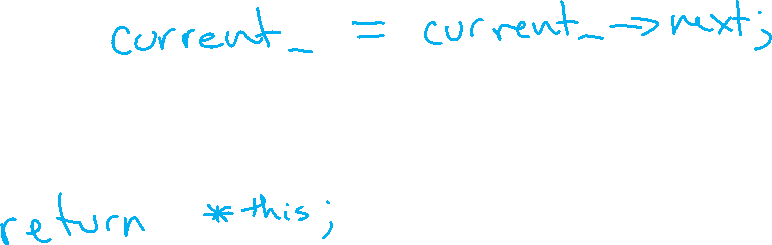 current_ = current_->next;
return *this;